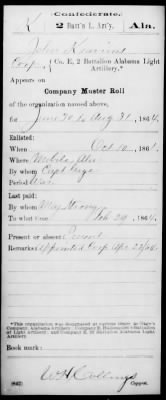 Confederate.
K 2 Batt'n L. Art'y. Ala.
John
Corp, Co. E, 2 Battalion Alabama Light
Artillery.*
Appears on
Company Muster Roll
of the organization named above,
for June 30 to Aug 31, 1864.
Enlisted:
When Oct 10, 1861.
Where Mobile Ala
By whom Capt Gage
Period War
Last paid:
By whom Maj
To what time Feb 29, 1864.
Present or absent Present
Remarks: Appointed Corp Apr
*This organization was designated at various times as Gage's
Company, Alabama Artillery; Company E, Hallonquist's Battalion
Light Artillery; and Company E, 2d Battalion Alabama Light
Artillery.
Book mark:
(642) Copyist.